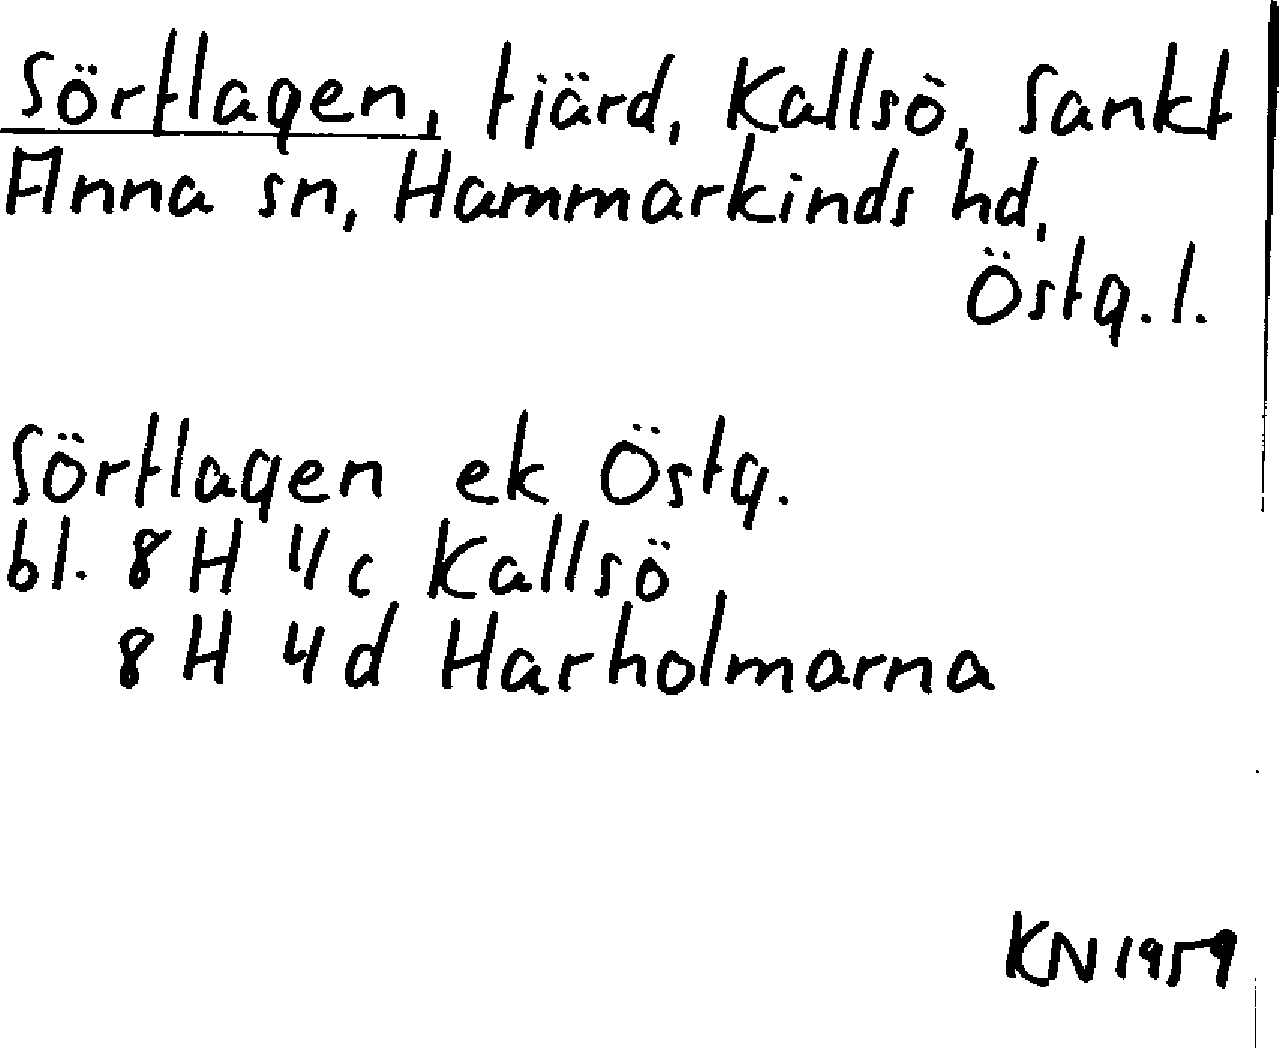 Sörflagen, fjärd, Kallsö, Sankt
Anna sn, Hammarkinds hd,
Östg. l.
Sörflagen ek Östg.
bl. 8 H 4 c Kallsö
8 H 4 d Harholmarna
KN 1959